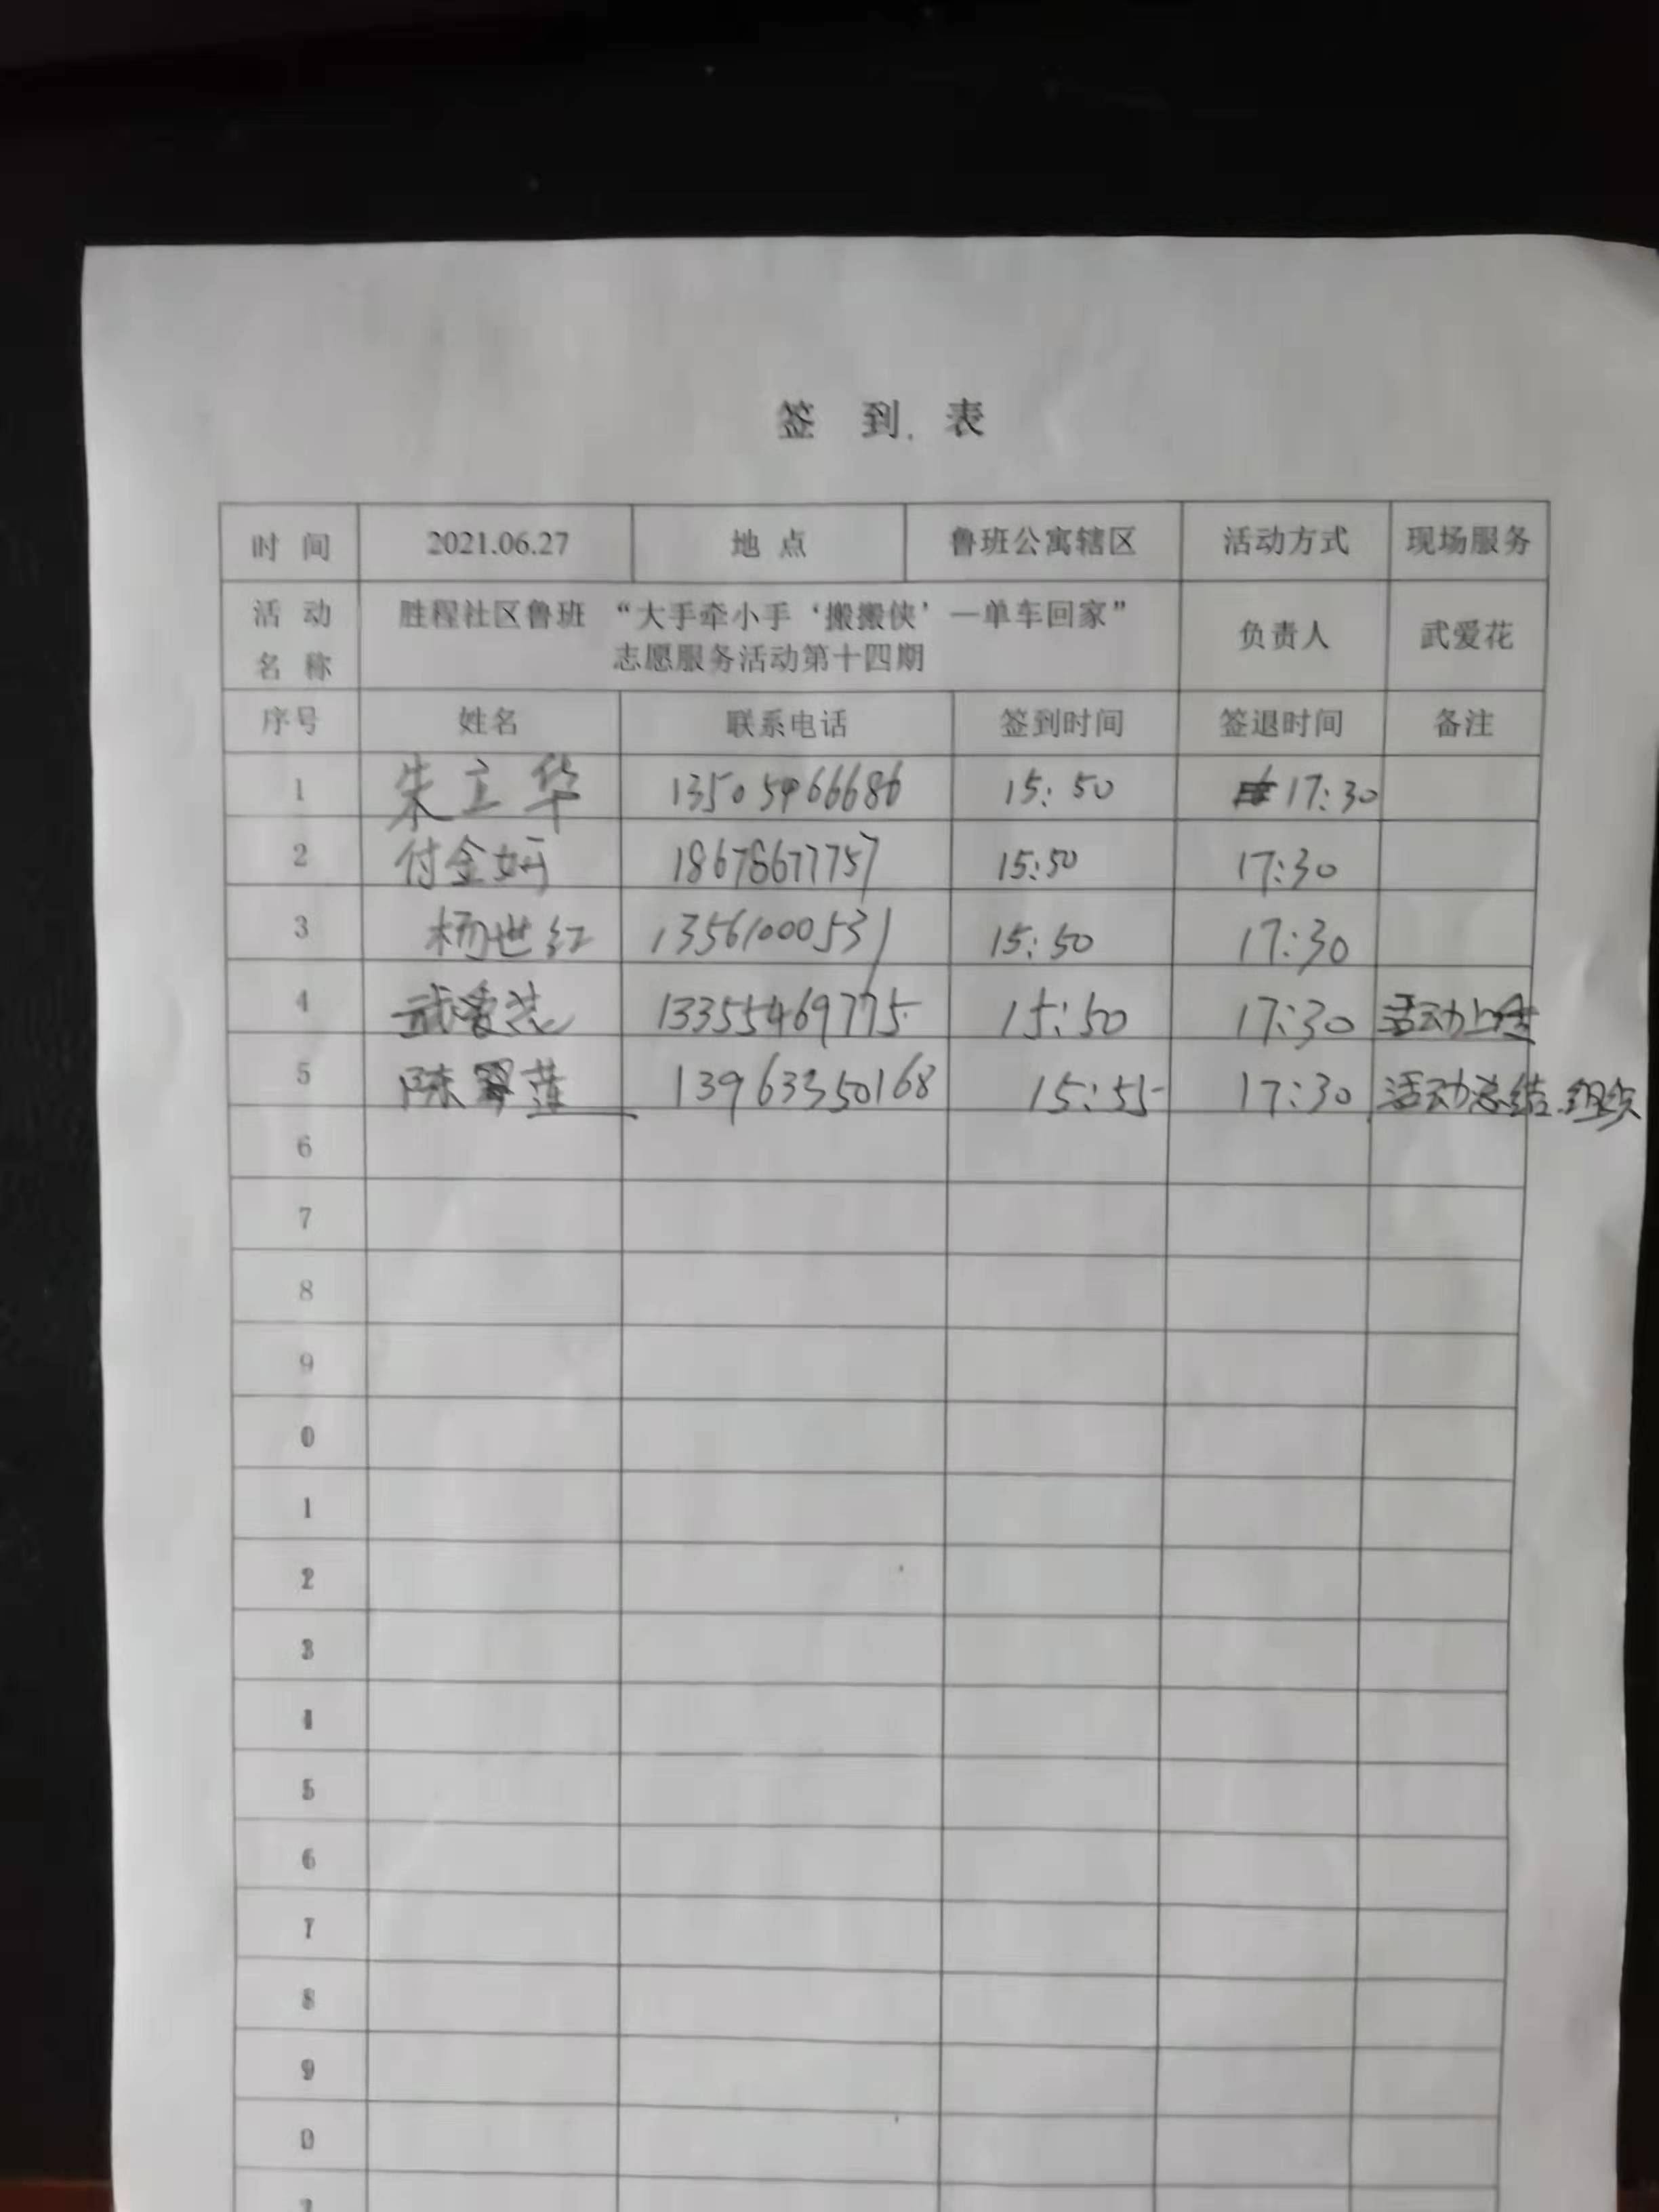 签 到 表
时 间 2021.06.27 地 点 鲁班公寓辖区 活动方式 现场服务
活 动 名 称 胜程社区鲁班 “大手牵小手‘搬搬侠’—单车回家” 负责人 武爱花
志愿服务活动第十四期
序号 姓名 联系电话 签到时间 签退时间 备注
1 朱立华 15:50 17:30
2 付金妍 18678677757 15:50 17:30
3 杨世红 13561000531 15:50 17:30
4 武爱花 13355469775 15:50 17:30 活动上传
5 陈翠莲 13963350168 15:55 17:30 活动总结.组织
6
7
8
9
0
1
2
3
4
5
6
7
8
9
0